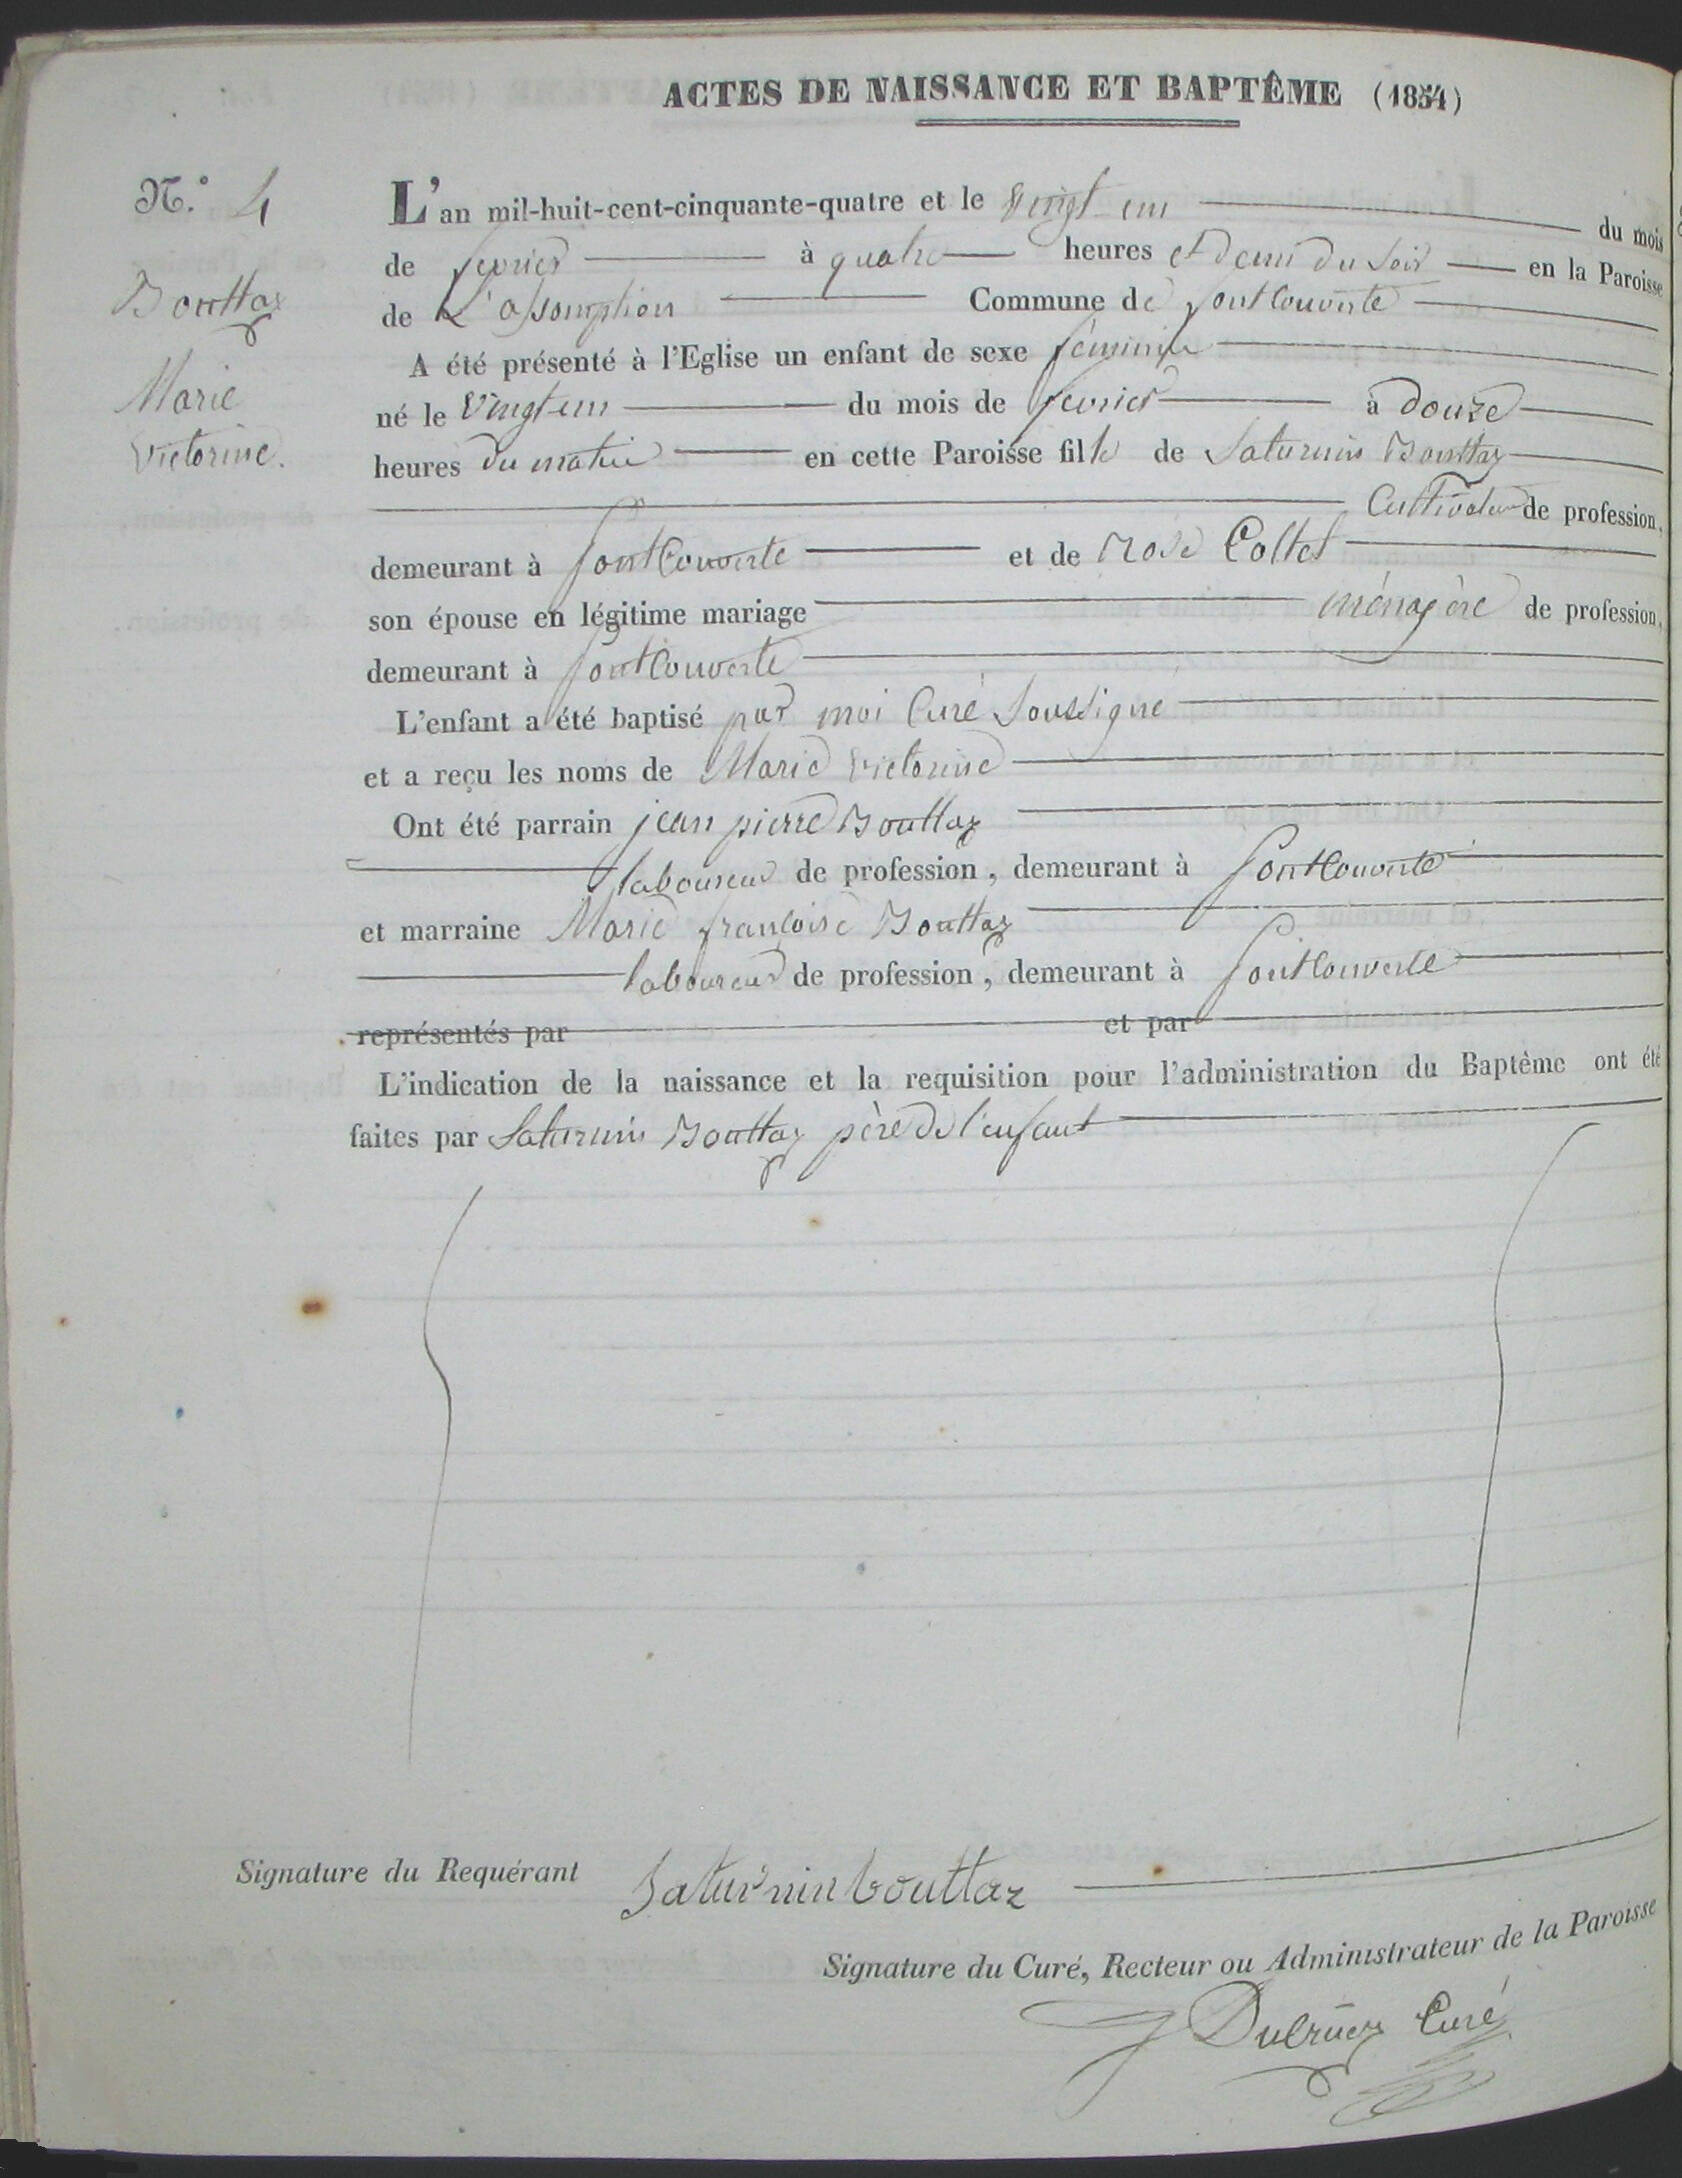 ACTES DE NAISSANCE ET BAPTÊME (1854)
N.° 4
Bouttaz
Marie
Victorine.
L'an mil-huit-cent-cinquante-quatre et le vingt un du mois
de fevrier à quatre heures et demi du soir en la Paroisse
de L'assomption Commune de fontcouverte
A été présenté à l'Eglise un enfant de sexe féminin
né le vingt un du mois de fevrier à douze
heures du matin en cette Paroisse fille de Saturnin Bouttaz
Cultivateur de profession,
demeurant à fontCouverte et de Rose Coltet
son épouse en légitime mariage ménagère de profession,
demeurant à fontCouverte
L'enfant a été baptisé par moi Curé Soussigné
et a reçu les noms de Marie Victorine
Ont été parrain jean pierre Bouttaz
laboureur de profession, demeurant à fontCouverte
et marraine Marie françoise Bouttaz
laboureur de profession, demeurant à fontCouverte
représentés par et par
L'indication de la naissance et la requisition pour l'administration du Baptême ont été
faites par Saturnin Bouttaz père de l'enfant
Signature du Requérant Saturnin bouttaz
Signature du Curé, Recteur ou Administrateur de la Paroisse
Curé